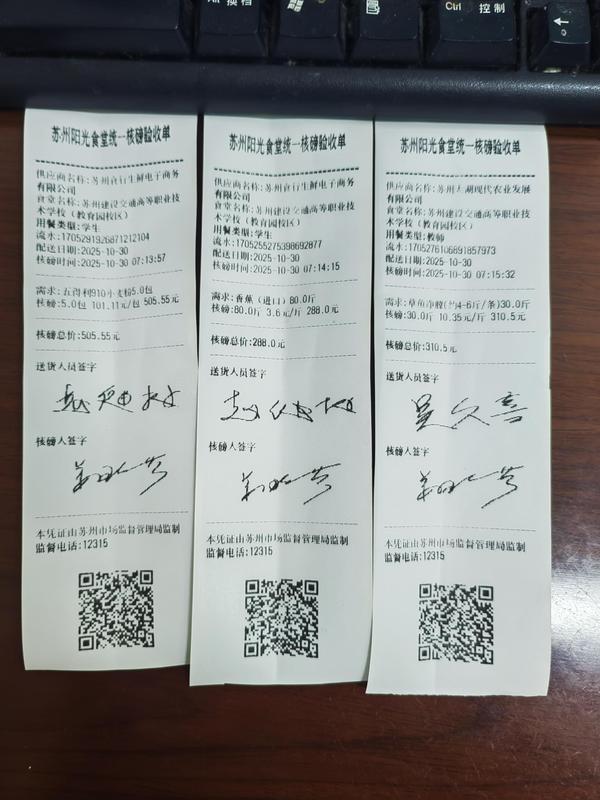 换档
Ctrl 控制
苏州阳光食堂统一核磅验收单
供应商名称:苏州食行生鲜电子商务
有限公司
食堂名称:苏州建设交通高等职业技
术学校(教育园校区)
用餐类型:学生
流水:1705291926871212104
配送日期:2025-10-30
核磅时间:2025-10-30 07:13:57
需求:五得利910小麦粉5.0包
核磅:5.0包 101.11元/包 505.55元
核磅总价:505.55元
送货人员签字
核磅人签字
本凭证由苏州市场监督管理局监制
监督电话:12315
苏州阳光食堂统一核磅验收单
供应商名称:苏州食行生鲜电子商务
有限公司
食堂名称:苏州建设交通高等职业技
术学校(教育园校区)
用餐类型:学生
流水:1705255275398692877
配送日期:2025-10-30
核磅时间:2025-10-30 07:14:15
需求:香蕉(进口)80.0斤
核磅:80.0斤 3.6元/斤 288.0元
核磅总价:288.0元
送货人员签字
核磅人签字
本凭证由苏州市场监督管理局监制
监督电话:12315
苏州阳光食堂统一核磅验收单
供应商名称:苏州太湖现代农业发展
有限公司
食堂名称:苏州建设交通高等职业技
术学校(教育园校区)
用餐类型:教师
流水:1705276106891857973
配送日期:2025-10-30
核磅时间:2025-10-30 07:15:32
需求:草鱼净膛(约4-6斤/条)30.0斤
核磅:30.0斤 10.35元/斤 310.5元
核磅总价:310.5元
送货人员签字
吴久喜
核磅人签字
本凭证由苏州市场监督管理局监制
监督电话:12315